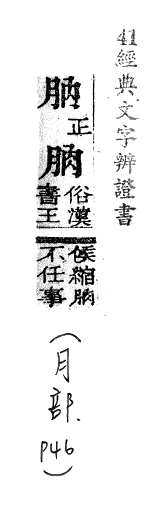 41經典文字辨證書
肭正
朒俗漢
書王
侯縮朒
不任事
(月部.P46)